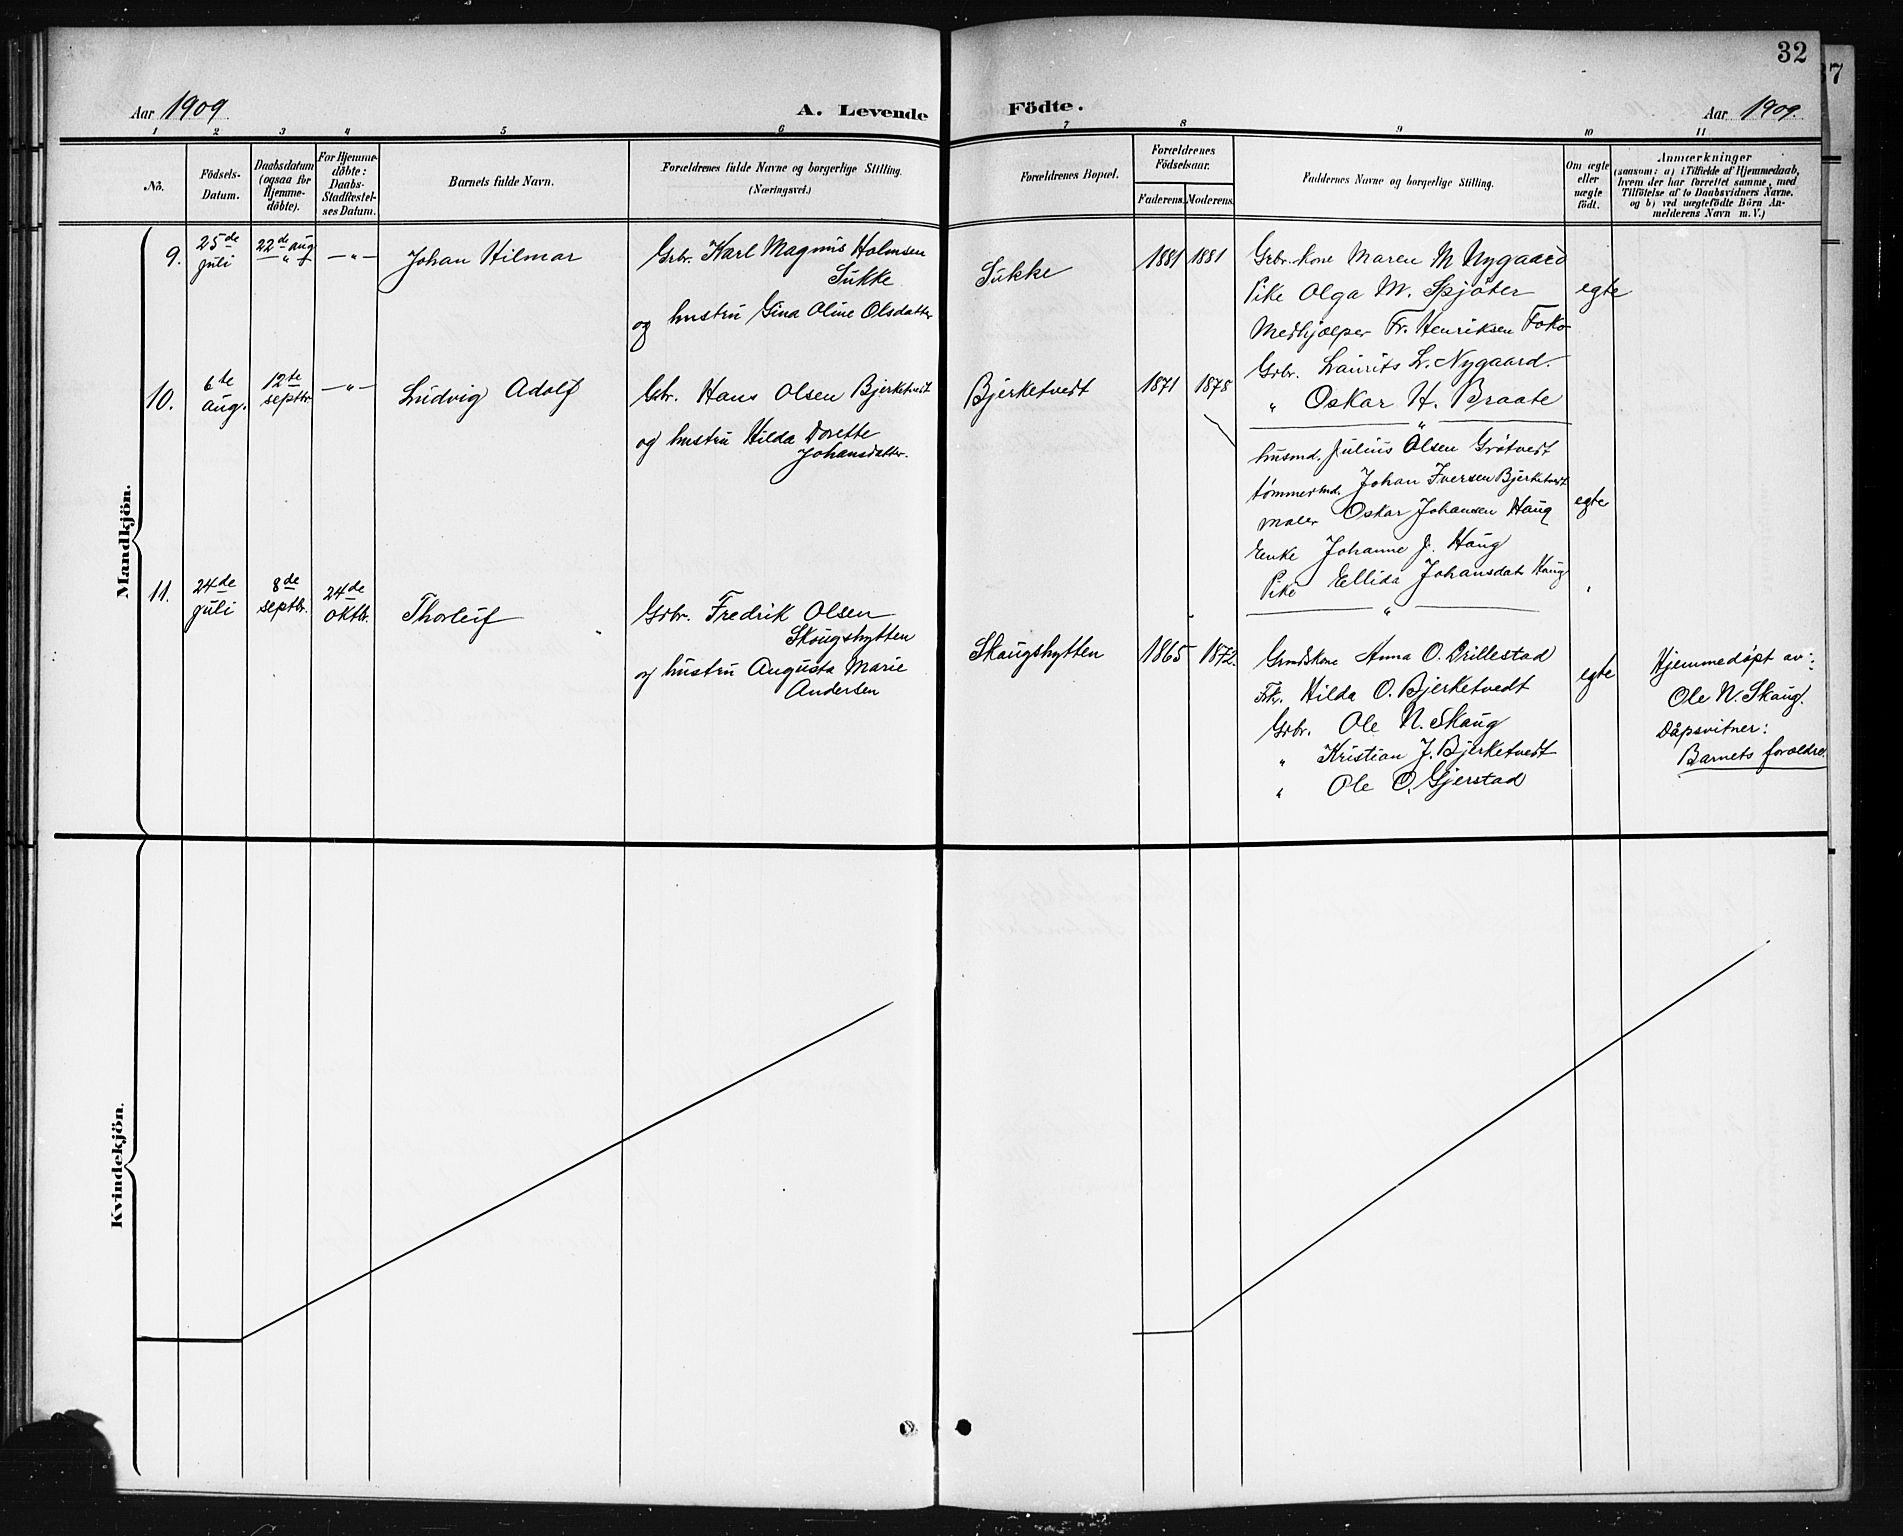 32
37
Aar 1909
A. Levende
Födte.
Aar 1909.
1 2 3 4 5 6 7 8 9 10 11
No.
Födsels-
Datum.
Daabsdatum
(ogsaa for
Hjemme-
döbte).
For Hjemme-
döbte:
Daabs-
Stadfæstel-
ses Datum.
Barnets fulde Navn.
Forældrenes fulde Navne og borgerlige Stilling.
(Næringsvei.)
Forældrenes Bopæl.
Forældrenes
Födselsaar.
Faderens. Moderens.
Faddernes Navne og borgerlige Stilling.
Om ægte
eller
uægte
födt.
Anmærkninger
(saasom: a) i Tilfælde af Hjemmedaab,
hvem der har forrettet samme, med
Tilföielse af to Daabsvidners Navne.
og b) ved uægtefödte Börn An-
melderens Navn m. V.)
Mandkjön.
9.
25de
juli
22de aug
"
— " —
Johan Hilmar
Grbr. Karl Magnus Holmsen
Sukke
og hustru Gina Oline Olsdatter
Sukke
1881 1881
Grbr. kone Maren M Nygaard
Pike Olga M. Spjøter
Medhjælper Fr. Henriksen Foko
Grbr. Laurits L. Nygaard.
" Oskar H. Braate
egte
"
10.
6te
aug.
12te
septbr.
— " —
Ludvig Adolf
Gbr. Hans Olsen Bjerketvedt
og hustru Hilda Dorette
Johansdatter.
Bjerketvedt
1871 1878
husmd. Julius Olsen Grötvedt
tömmermd. Johan Iversen Bjerketvedt
maler Oskar Johansen Haug
Enke Johanne J. Haug
Pike Ellida Johansdatr Haug
egte
"
11.
24de
juli
8de
septbr.
24de
oktbr.
Thorleif
Grbr. Fredrik Olsen
Skougshytten
og hustru Augusta Marie
Andersen
Skaugshytten
1865 1872.
Grndskone Anna O. Drillestad
Frk. Hilda O. Bjerketvedt
Grbr. Ole N. Skaug
" Kristian J. Bjerketvedt
" Ole O. Gjerstad
egte
Hjemmedøpt av:
Ole N. Skaug.
Dåpsvitner:
Barnets foreldre.
Kvindekjön.